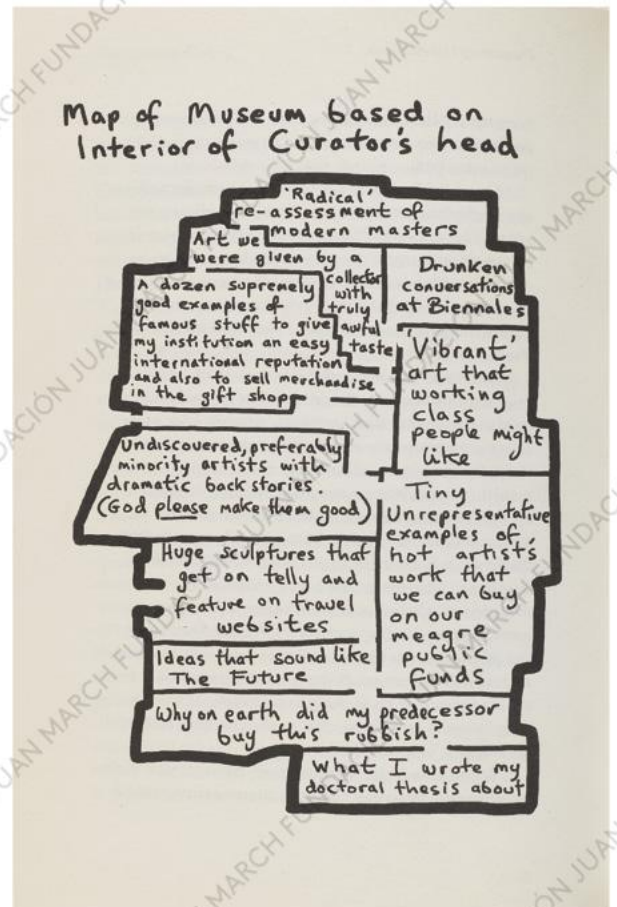 Map of Museum based on
Interior of Curator's head
'Radical'
re-assessment of
modern masters
Art we
were given by a
collector
with
truly
awful
taste
Drunken
conversations
at Biennales
A dozen supremely
good examples of
famous stuff to give
my institution an easy
international reputation
and also to sell merchandise
in the gift shop
'Vibrant'
art that
working
class
people might
like
Undiscovered, preferably
minority artists with
dramatic back stories.
(God please make them good)
Tiny
Unrepresentative
examples of
hot artist's
work that
we can buy
on our
meagre
public
funds
Huge sculptures that
get on telly and
feature on travel
websites
Ideas that sound like
The Future
Why on earth did my predecessor
buy this rubbish?
What I wrote my
doctoral thesis about
FUNDACIÓN JUAN MARCH